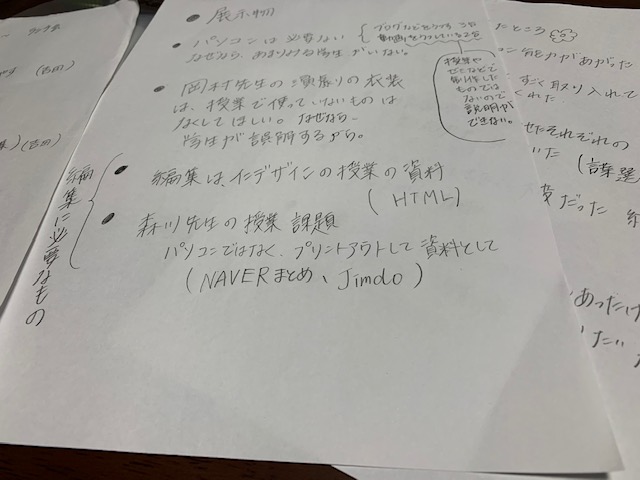 展示物
パソコンは必要ない
なぜなら、あまりみる学生がいない。
ブログなどをうつす
動画をうつしている
授業や
ゼミなどで
制作した
ものでは
ないので
説明が
できない。
岡村先生の
衣装
は、授業で使っていないものは
なくしてほしい。なぜなら
学生が説明するから。
編集に必要なもの
編集は、インデザインの授業の資料
(HTML)
森川先生の授業課題
パソコンではなく、プリントアウトして資料として
(NAVERまとめ、Jimdo)
たところ
能力があがった
すごく取り入れて
くれた
せたそれぞれの
いた
だった
あったけ
(吉田)
(吉田)